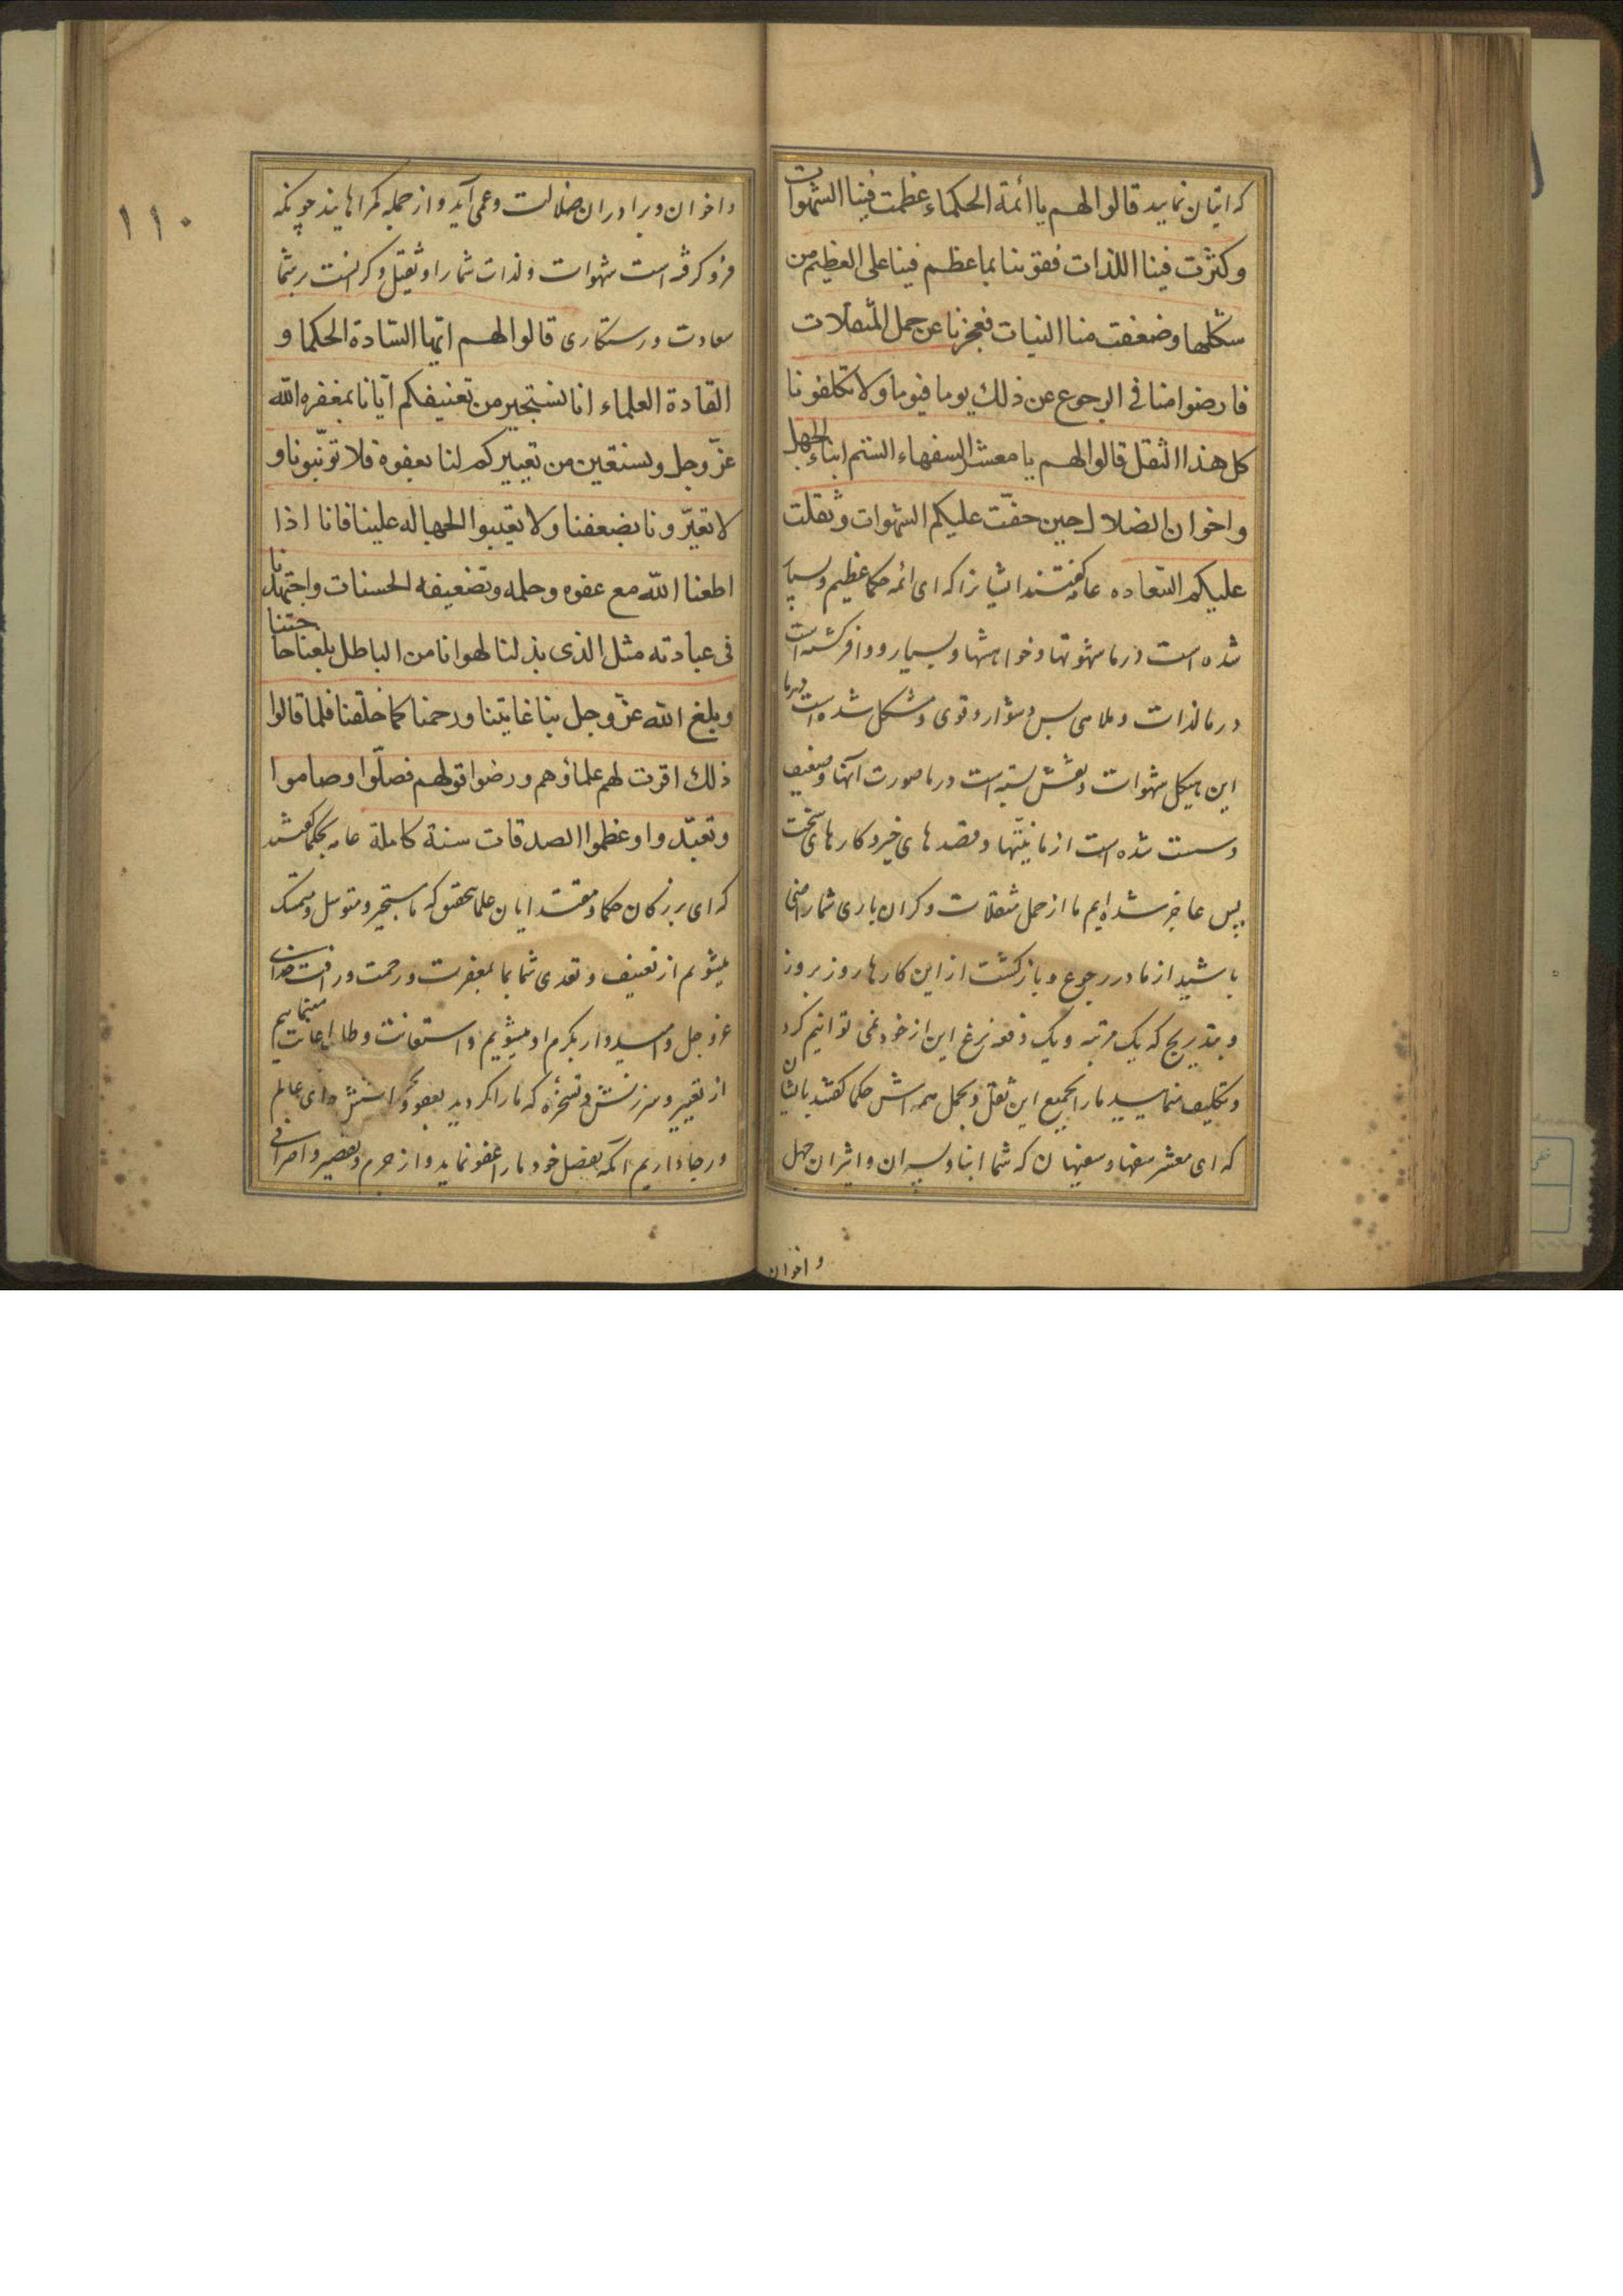 که اتیان نمایید قالوا لهم یا ائمة الحکماء عظمت فینا الشهوات
و کثرت فینا اللذات فقوتنا بما عظم فینا علی العظیم من
شکلها و ضعفت منا النیات فعجزنا عن حمل المثقلات
فارضوا منا فی الرجوع عن ذلك یوما فیوما و لا تکلفونا
کل هذا الثقل قالوا لهم یا معشر السفهاء الستم ابناء الجهل
و اخوان الضلال حین خفّت علیکم الشهوات و ثقلت
علیکم السّعاده عامه گفتند ایشانرا که ای ائمه حکما عظیم و بسیار
شده است در ما شهوتها و خواهشها و بسیار و وافر گشته است
در ما لذات و ملاهی بس دشوار و قوی و مشکل شده است بر ما
این هیکل شهوات و نقش بسته است در ما صورت آنها و ضعیف
و سست شده است از ما نیّتها و قصدهای خیر و کارهای سخت
پس عاجز شده ایم ما از حمل مثقلات و کران باری شما راضی
باشید از ما در رجوع و بازکشت از این کارها روز بروز
و بتدریج که یک مرتبه و یک دفعه نزع این از خود نمی توانیم کرد
و تکلیف منمایید ما را بجمیع این ثقل و بحمل همه اش حکما گفتند بایشان
که ای معشر سفها و سفیهان که شما ابنا و پسران و اثیران جهل
و اخوان
۱۱۰
و اخوان و برادران ضلالت و عمی آید و از جمله گمراهانید چونکه
فرو گرفته است شهوات و لذات شما را و ثقیل و گرانست بر شما
سعادت و رستکاری قالوا لهم ایّها السّادة الحکما و
القادة العلماء انا نستجیر من تعنیفکم ایّانا بمغفره الله
عزّ و جل و نستعین من تعییرکم لنا بعفوه فلا تؤنّبونا و
لا تعیّرونا بضعفنا و لا تعیبوا الجهاله علینا فانا اذا
اطعنا الله مع عفوه و حلمه و تضعیفه الحسنات و اجتهدنا
فی عبادته مثل الذی بذلنا لهوانا من الباطل بلغنا حاجتنا
و بلغ الله عزّ و جل بنا غایتنا و رحمنا کما خلقنا فلما قالوا
ذلك اقرت لهم علماؤهم و رضوا قولهم فصلّوا و صاموا
و تعبّدوا و اعظموا الصدقات سنة کاملة عامه بحکما گفتند
که ای بزرکان حکما و مقتدایان علما بتحقیق که ما مستجیر و متوسل و متمسک
میشویم از تعنیف و تعدی شما بما بمغفرت و رحمت و رافت خدای
عز و جل و امیدوار بکرم او میشویم و استعانت و طلب اعانت مینماییم
از تعییر و سرزنش و تسخره که ما را کردید بعفو و بخشش خدای عالم
و رجا داریم آنکه بفضل خود ما را عفو نماید و از جرم و تقصیر و اسراف